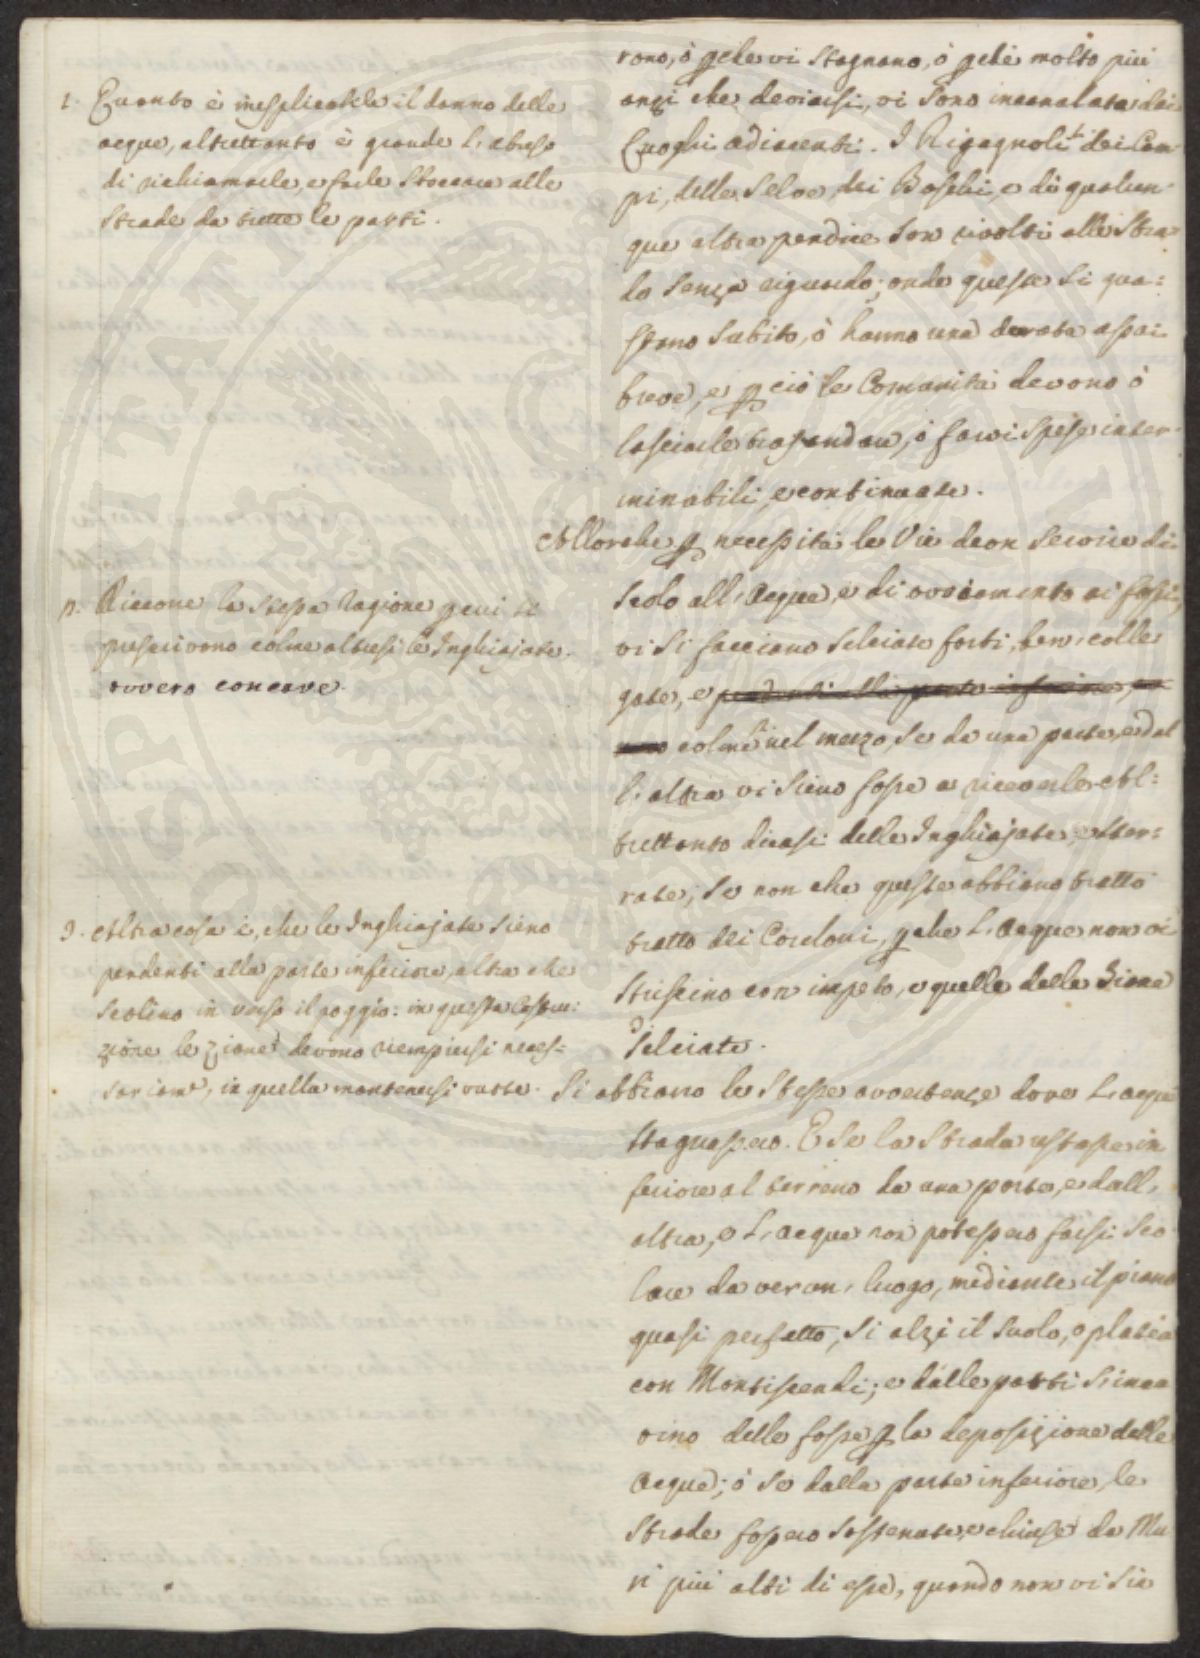 1. Quanto è inesplicabile il danno delle
acque, altrettanto è grande l'abuso
di richiamarle, e farle sboccare alle
strade da tutte le parti.
n. Ricorre la stessa ragione per cui si
prescrivono colme altresì le Inghiajate.
ovvero concave.
3. Altra cosa è, che le Inghiajate sieno
pendenti alla parte inferiore, altra che
scolino in verso il poggio: in questa costru:
zione le devono riempiersi neces:
sariamte, in quella mantenersi vuote.
rono, ò perche vi stagnano, ò perchè molto più
anzi che deviarsi, vi sono incanalate dai
Luoghi adiacenti. I Rigagnoli dei Cam
pi, delle Selve, dei Boschi, e di qualun-
que altra pendice son rivolti alle Stra-
de senza riguardo; onde queste si gua:
stano subito, ò hanno una durata assai
breve, e per ciò le Comunità devono ò
lasciarle trasandare, ò farvi spese inter-
minabili, e continuate.
Allorche per necessità le Vie deon servire di
scolo all'Acque, e di ovviamento ai fossi,
vi si facciano selciate forti, ben, colle
gate, e pendenti alla parte inferiore,
colme nel mezzo, se da una parte, e dal
l'altra vi sieno fosse a riceverle. Al:
trettanto dicasi delle Inghiajate, e ster:
rate; se non che queste abbiano tratto
tratto dei Cordoni, perche l'Acque non vi
striscino con impeto, e quelle delle
selciate.
Si abbiano le stesse avvertenze dove l'acque
stagnassero. E se la strada restasse in
feriore al terreno da una parte, e dall'
altra, e l'Acque non potessero farsi sco
lare da verun' luogo, mediante il piano
quasi perfetto, si alzi il suolo, o platea
con Montiscendi; e dalle parti s'inca
vino delle fosse per la deposizione delle
Acque; ò se dalla parte inferiore, le
Strade fossero sostenute, e chiuse da Mu
ri più alti di esse, quando non vi sia